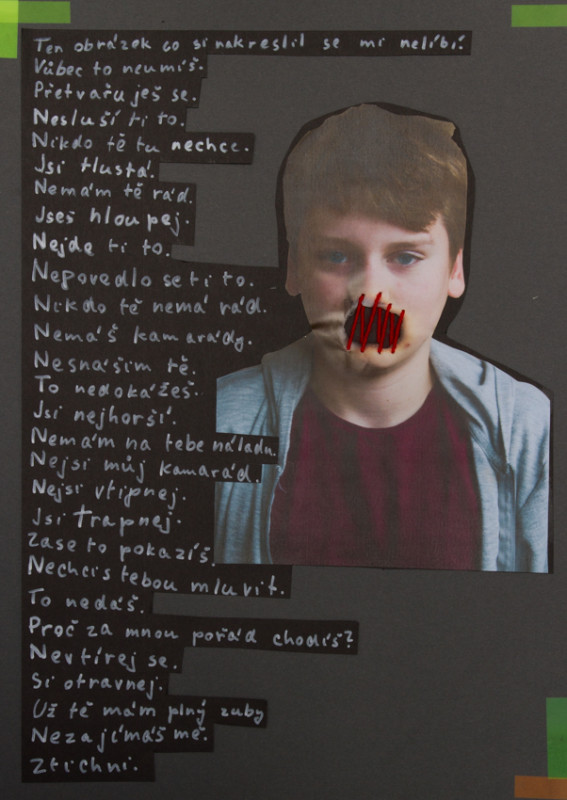 Ten obrázek co si nakreslil se mi nelíbí.
Vůbec to neumíš.
Přetvařuješ se.
Nesluší ti to.
Nikdo tě tu nechce.
Jsi tlustá.
Nemám tě rád.
Jseš hloupej.
Nejde ti to.
Nepovedlo se ti to.
Nikdo tě nemá rád.
Nemáš kamarády.
Nesnáším tě.
To nedokážeš.
Jsi nejhorší.
Nemám na tebe náladu.
Nejsi můj kamarád.
Nejsi vtipnej.
Jsi trapnej.
Zase to pokazíš.
Nechci s tebou mluvit.
To nedáš.
Proč za mnou pořád chodíš?
Nevtírej se.
Si otravnej.
Už tě mám plný zuby
Nezajímáš mě.
Ztichni.